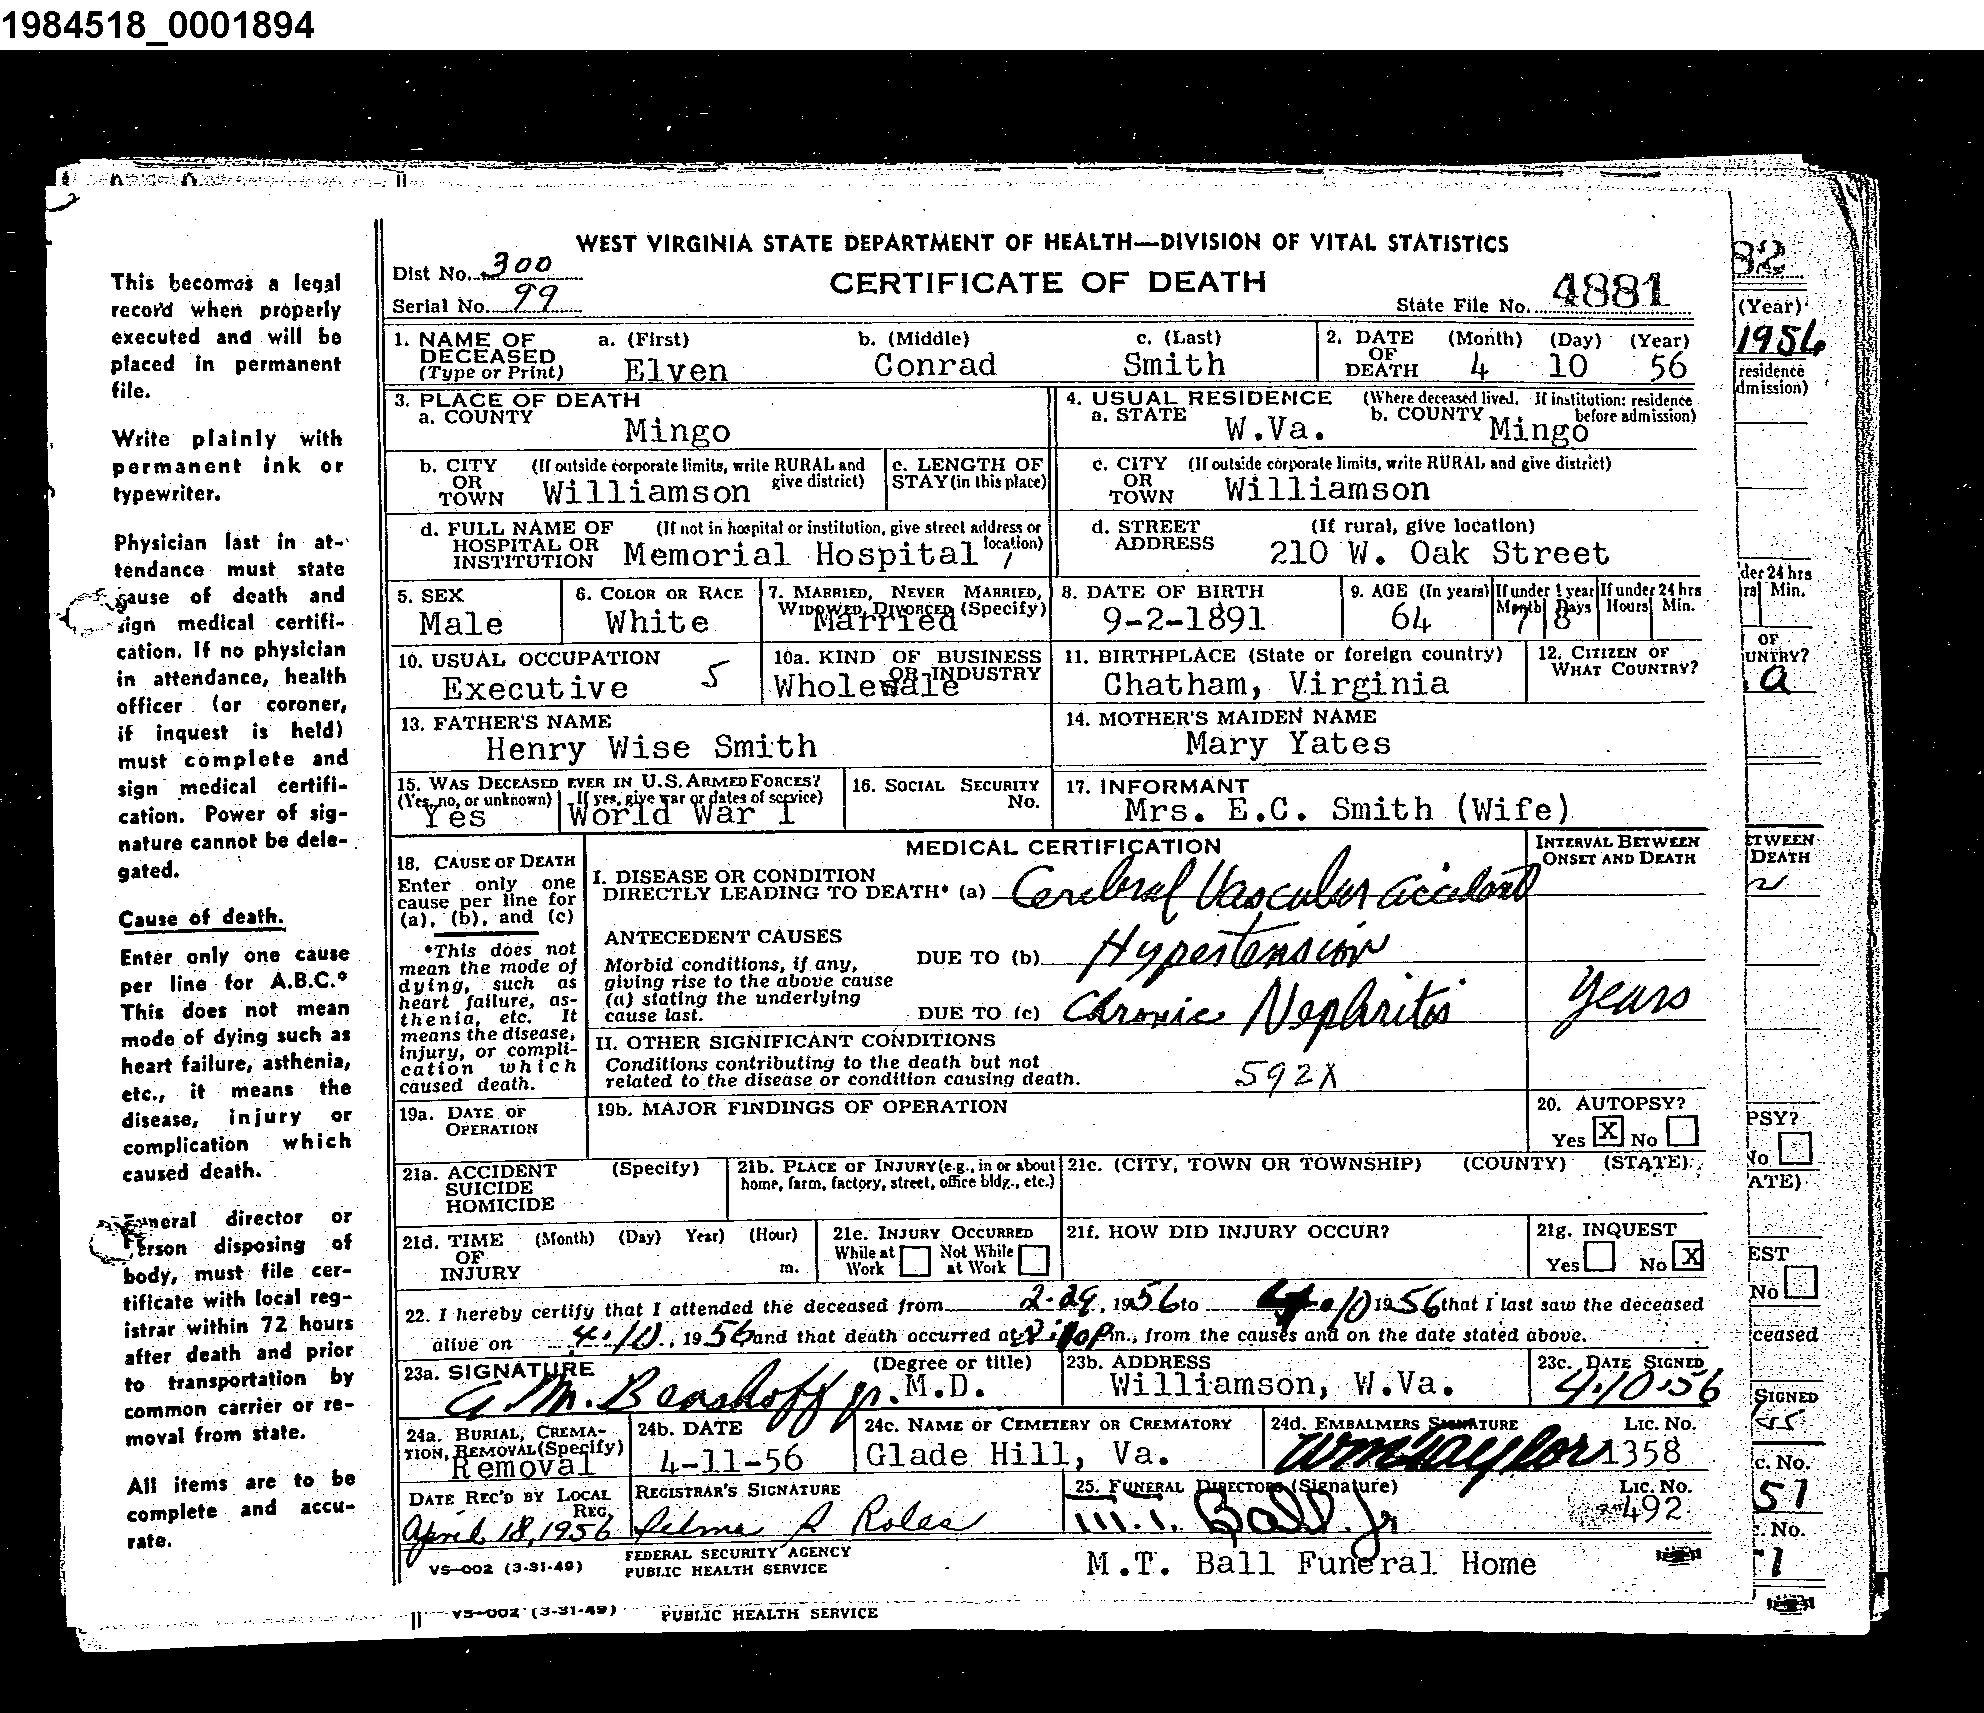 1984518_0001894
WEST VIRGINIA STATE DEPARTMENT OF HEALTH—DIVISION OF VITAL STATISTICS
CERTIFICATE OF DEATH
Dist No. 300
Serial No. 99
State File No. 4881
This becomes a legal
record when properly
executed and will be
placed in permanent
file.
Write plainly with
permanent ink or
typewriter.
Physician last in at-
tendance must state
cause of death and
sign medical certifi-
cation. If no physician
in attendance, health
officer (or coroner,
if inquest is held)
must complete and
sign medical certifi-
cation. Power of sig-
nature cannot be dele-
gated.
Cause of death.
Enter only one cause
per line for A.B.C.*
This does not mean
mode of dying such as
heart failure, asthenia,
etc., it means the
disease, injury or
complication which
caused death.
Funeral director or
person disposing of
body, must file cer-
tificate with local reg-
istrar within 72 hours
after death and prior
to transportation by
common carrier or re-
moval from state.
All items are to be
complete and accu-
rate.
1. NAME OF DECEASED (Type or Print) a. (First) Elven b. (Middle) Conrad c. (Last) Smith
2. DATE OF DEATH (Month) 4 (Day) 10 (Year) 56
3. PLACE OF DEATH
a. COUNTY Mingo
4. USUAL RESIDENCE (Where deceased lived. If institution: residence before admission)
a. STATE W.Va. b. COUNTY Mingo
b. CITY OR TOWN (If outside corporate limits, write RURAL and give district) Williamson
c. LENGTH OF STAY (in this place)
c. CITY OR TOWN (If outside corporate limits, write RURAL and give district) Williamson
d. FULL NAME OF HOSPITAL OR INSTITUTION (If not in hospital or institution, give street address or location) Memorial Hospital 1
d. STREET ADDRESS (If rural, give location) 210 W. Oak Street
5. SEX Male
6. COLOR OR RACE White
7. MARRIED, NEVER MARRIED, WIDOWED, DIVORCED (Specify) Married
8. DATE OF BIRTH 9-2-1891
9. AGE (In years) 64 If under 1 year Month 7 Days 8 If under 24 hrs Hours Min.
10. USUAL OCCUPATION Executive 5
10a. KIND OF BUSINESS OR INDUSTRY Wholesale
11. BIRTHPLACE (State or foreign country) Chatham, Virginia
12. CITIZEN OF WHAT COUNTRY?
13. FATHER'S NAME Henry Wise Smith
14. MOTHER'S MAIDEN NAME Mary Yates
15. WAS DECEASED EVER IN U.S. ARMED FORCES? (Yes, no, or unknown) Yes (If yes, give war or dates of service) World War 1
16. SOCIAL SECURITY No.
17. INFORMANT Mrs. E.C. Smith (Wife)
MEDICAL CERTIFICATION
INTERVAL BETWEEN ONSET AND DEATH
18. CAUSE OF DEATH
Enter only one cause per line for (a), (b), and (c)
*This does not mean the mode of dying, such as heart failure, asthenia, etc. It means the disease, injury, or complication which caused death.
I. DISEASE OR CONDITION DIRECTLY LEADING TO DEATH* (a) Cerebral Vascular accident
ANTECEDENT CAUSES
Morbid conditions, if any, giving rise to the above cause (a) stating the underlying cause last.
DUE TO (b) Hypertension
DUE TO (c) Chronic Nephritis Years
II. OTHER SIGNIFICANT CONDITIONS
Conditions contributing to the death but not related to the disease or condition causing death. 592X
19a. DATE OF OPERATION
19b. MAJOR FINDINGS OF OPERATION
20. AUTOPSY? Yes X No
21a. ACCIDENT SUICIDE HOMICIDE (Specify)
21b. PLACE OF INJURY (e.g., in or about home, farm, factory, street, office bldg., etc.)
21c. (CITY, TOWN OR TOWNSHIP) (COUNTY) (STATE)
21d. TIME OF INJURY (Month) (Day) Year) (Hour) m.
21e. INJURY OCCURRED While at Work Not While at Work
21f. HOW DID INJURY OCCUR?
21g. INQUEST Yes No X
22. I hereby certify that I attended the deceased from 2-29, 1956 to 4-10 1956 that I last saw the deceased
alive on 4-10, 1956 and that death occurred at m., from the causes and on the date stated above.
23a. SIGNATURE (Degree or title) M.D.
23b. ADDRESS Williamson, W.Va.
23c. DATE SIGNED 4-10-56
24a. BURIAL, CREMATION, REMOVAL (Specify) Removal
24b. DATE 4-11-56
24c. NAME OF CEMETERY OR CREMATORY Glade Hill, Va.
24d. EMBALMERS SIGNATURE Wm Taylor LIC. No. 1358
DATE REC'D BY LOCAL REG. April 18, 1956
REGISTRAR'S SIGNATURE
25. FUNERAL DIRECTORS (Signature) M.T. Ball Jr LIC. No. 492
M.T. Ball Funeral Home
VS-002 (3-31-49)
FEDERAL SECURITY AGENCY
PUBLIC HEALTH SERVICE
VS-002 (3-31-49) PUBLIC HEALTH SERVICE
82
(Year)
1956
residence
dmission)
der 24 hrs
rs Min.
OF
UNTRY?
a
ETWEEN
DEATH
PSY?
No
ATE)
EST
No
ceased
SIGNED
c. No.
51
. No.
1